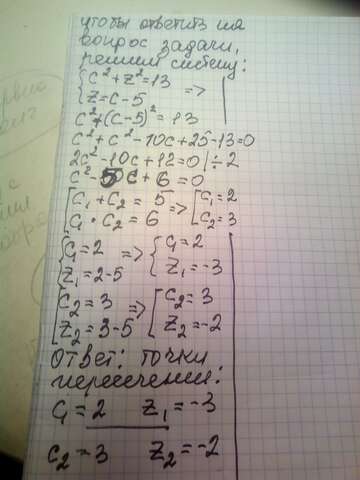 чтобы ответить на
вопрос задачи,
решим систему:
{c²+z²=13
{z=c-5 =>
c²+(c-5)²=13
c²+c²-10c+25-13=0
2c²-10c+12=0 |÷2
c²-5c+6=0
[c₁+c₂=5 => [c₁=2
[c₁·c₂=6 [c₂=3
{c₁=2 => {c₁=2
{z₁=2-5 {z₁=-3
[c₂=3 => [c₂=3
[z₂=3-5 [z₂=-2
ответ: точки
пересечения:
c₁=2 z₁=-3
c₂=3 z₂=-2